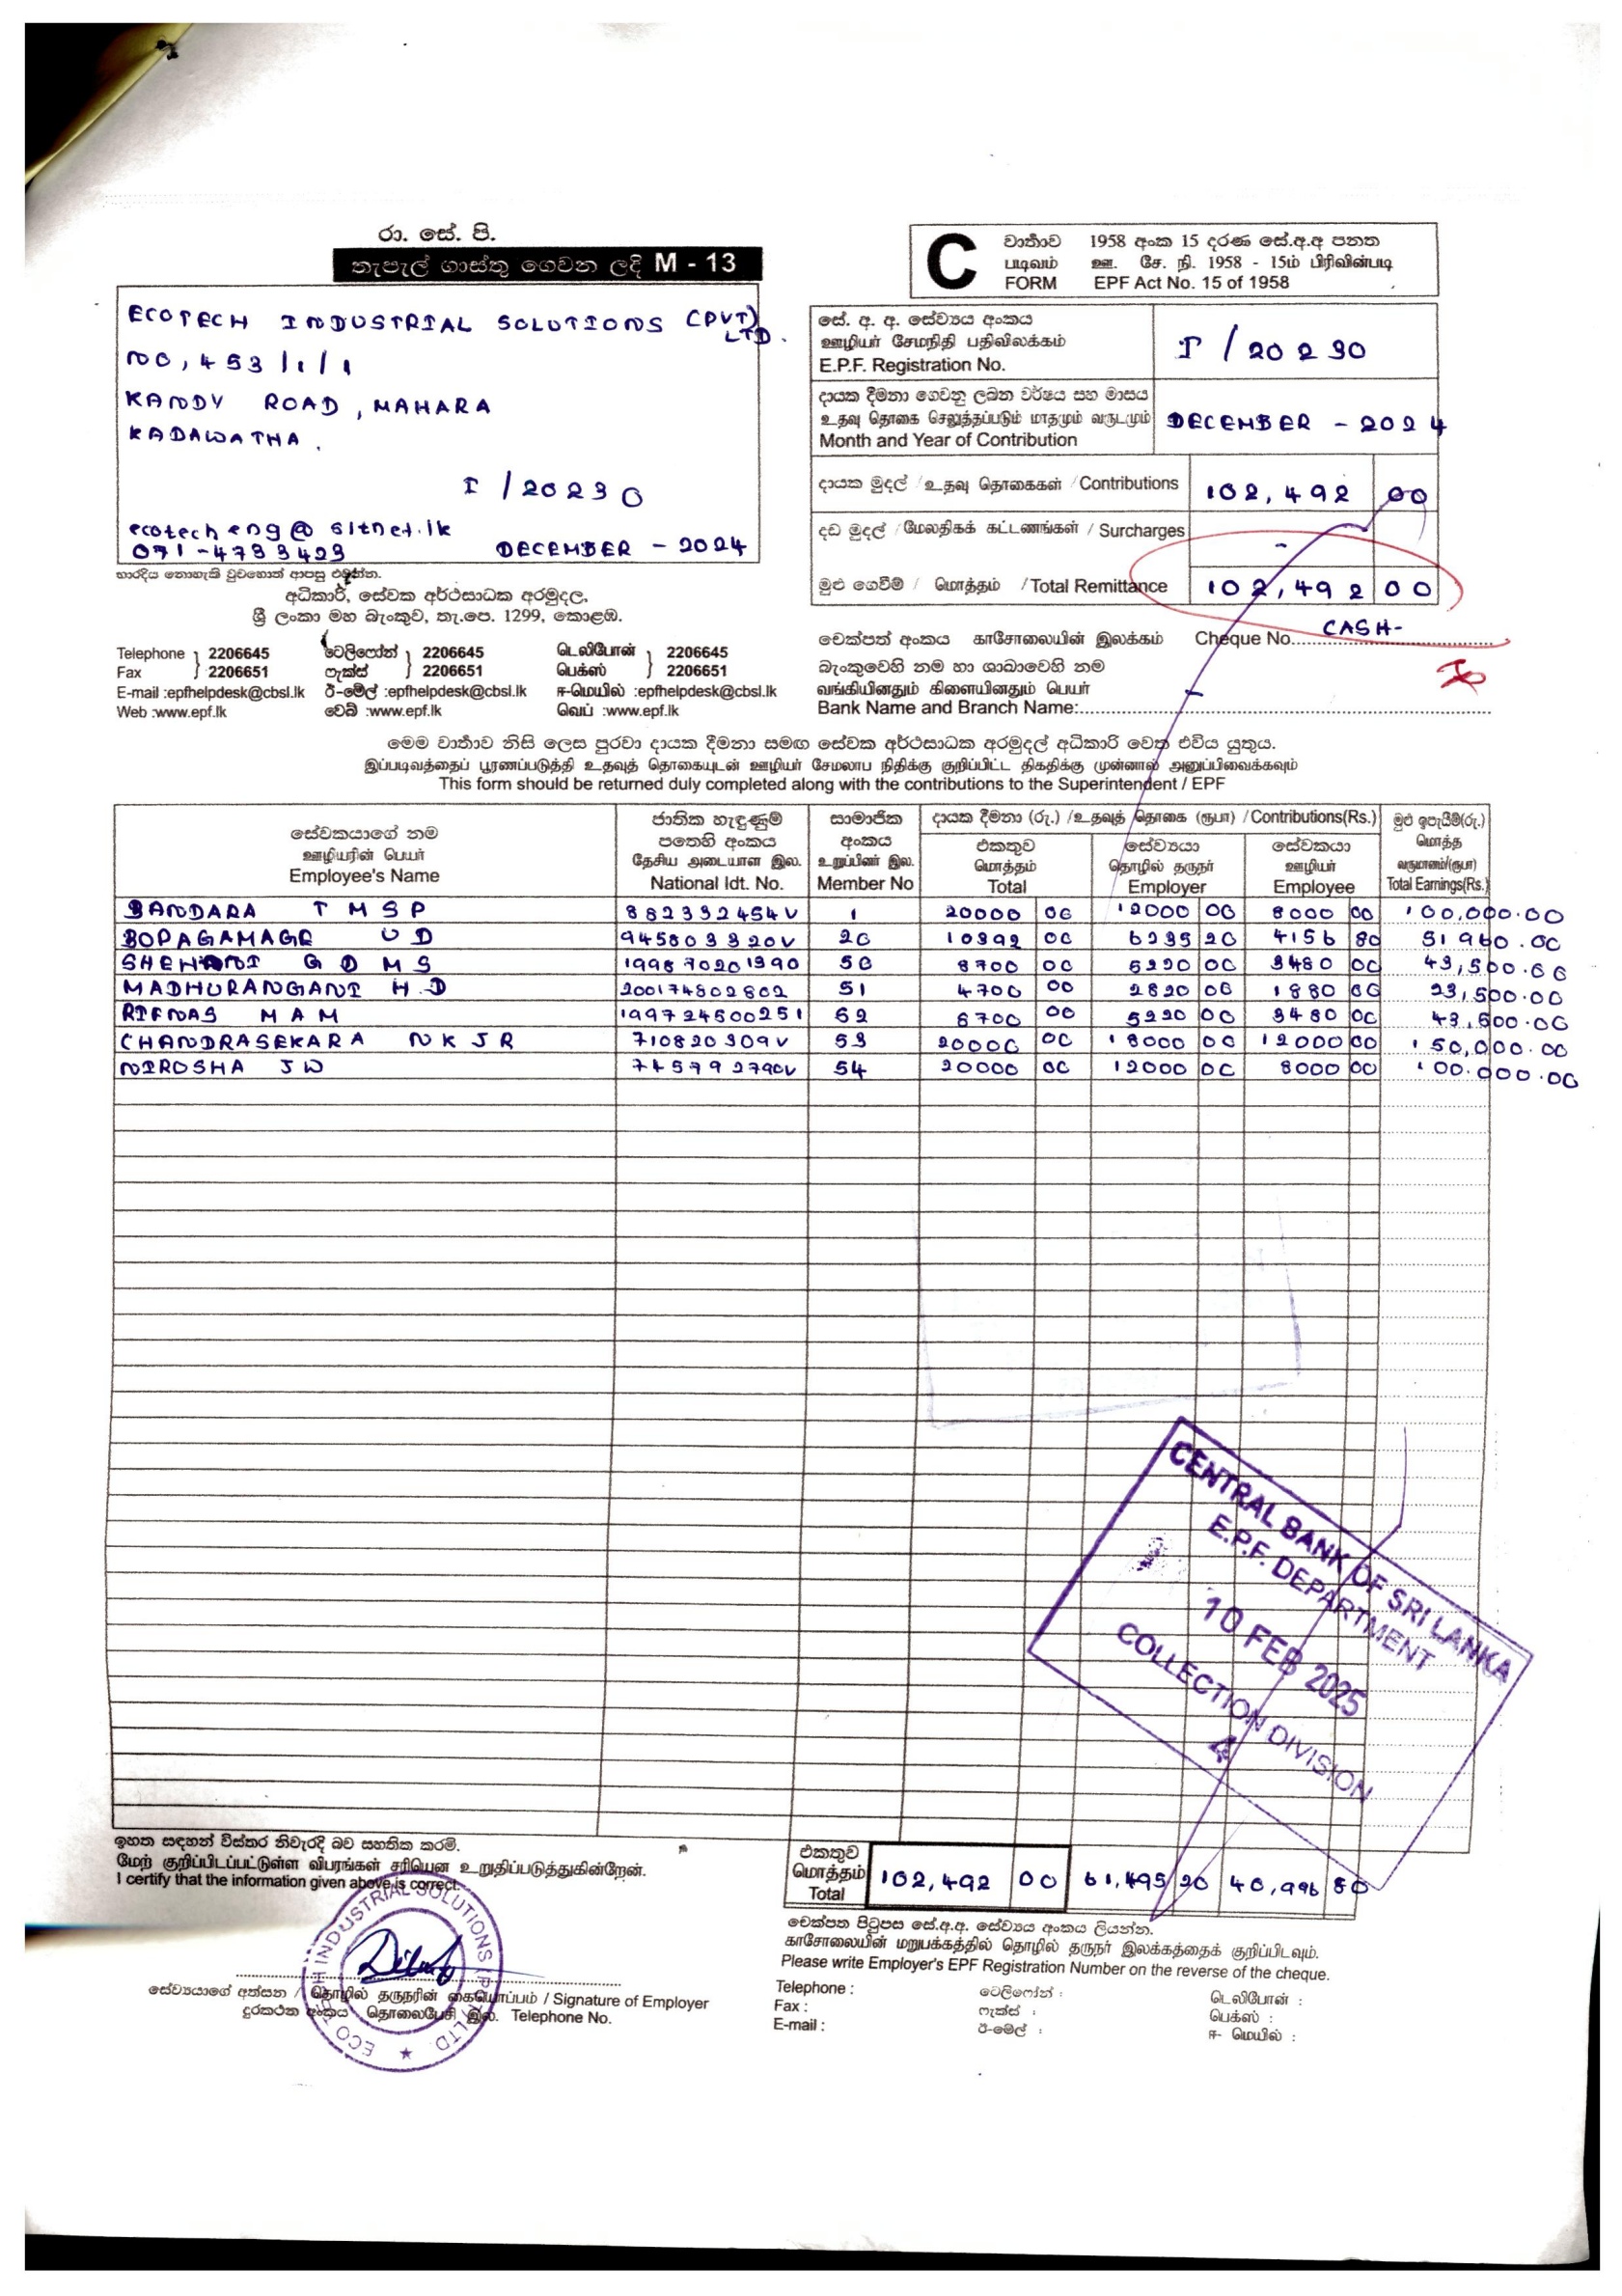 රා. සේ. පි.
තැපැල් ගාස්තු ගෙවන ලදි M - 13
ECOTECH INDUSTRIAL SOLUTIONS (PVT) LTD.
NO, 453/1/1
KANDY ROAD, MAHARA
KADAWATHA.
I/20230
ecotecheng@sltnet.lk
071-4733423 DECEMBER - 2024
භාරදිය නොහැකි වුවහොත් ආපසු එවන්න.
අධිකාරි, සේවක අර්ථසාධක අරමුදල,
ශ්‍රී ලංකා මහ බැංකුව, තැ.පෙ. 1299, කොළඹ.
Telephone } 2206645 ටෙලිෆෝන් } 2206645 டெலிபோன் } 2206645
Fax } 2206651 ෆැක්ස් } 2206651 பெக்ஸ் } 2206651
E-mail :epfhelpdesk@cbsl.lk ඊ-මේල් :epfhelpdesk@cbsl.lk ஈ-மெயில் :epfhelpdesk@cbsl.lk
Web :www.epf.lk වෙබ් :www.epf.lk வெப் :www.epf.lk
C
වාර්තාව 1958 අංක 15 දරණ සේ.අ.අ පනත
படிவம் ஊ. சே. நி. 1958 - 15ம் பிரிவின்படி
FORM EPF Act No. 15 of 1958
සේ. අ. අ. සේව්‍ය අංකය
ஊழியர் சேமநிதி பதிவிலக்கம்
E.P.F. Registration No. I/20230
දායක දීමනා ගෙවනු ලබන වර්ෂය සහ මාසය
உதவு தொகை செலுத்தப்படும் மாதமும் வருடமும்
Month and Year of Contribution DECEMBER - 2024
දායක මුදල් / உதவு தொகைகள் / Contributions 102,492 00
දඩ මුදල් / மேலதிகக் கட்டணங்கள் / Surcharges -
මුළු ගෙවීම් / மொத்தம் / Total Remittance 102,492 00
චෙක්පත් අංකය காசோலையின் இலக்கம் Cheque No. CASH-
බැංකුවෙහි නම හා ශාඛාවෙහි නම
வங்கியினதும் கிளையினதும் பெயர்
Bank Name and Branch Name:
මෙම වාර්තාව නිසි ලෙස පුරවා දායක දීමනා සමඟ සේවක අර්ථසාධක අරමුදල් අධිකාරි වෙත එවිය යුතුය.
இப்படிவத்தைப் பூரணப்படுத்தி உதவுத் தொகையுடன் ஊழியர் சேமலாப நிதிக்கு குறிப்பிட்ட திகதிக்கு முன்னால் அனுப்பிவைக்கவும்
This form should be returned duly completed along with the contributions to the Superintendent / EPF
සේවකයාගේ නම ஊழியரின் பெயர் Employee's Name
ජාතික හැඳුණුම් පතෙහි අංකය தேசிய அடையாள இல. National Idt. No.
සාමාජික අංකය உறுப்பினர் இல. Member No
දායක දීමනා (රු.) /உதவுத் தொகை (ரூபா) /Contributions(Rs.)
එකතුව மொத்தம் Total
සේව්‍යයා தொழில் தருநர் Employer
සේවකයා ஊழியர் Employee
මුළු ඉපැයීම්(රු.) மொத்த வருமானம்(ரூபா) Total Earnings(Rs.)
BANDARA T M S P 882332454V 1 20000 00 12000 00 8000 00 100,000.00
BOPAGAMAGE U D 945803320V 20 10392 00 6235 20 4156 80 51960.00
SHEHANI G D M S 199870201390 50 8700 00 5220 00 3480 00 43,500.00
MADHURANGANI H.D 200174802802 51 4700 00 2820 00 1880 00 23,500.00
RIFNAS M A M 199724500251 52 8700 00 5220 00 3480 00 43,500.00
CHANDRASEKARA N K J R 710820309V 53 30000 00 18000 00 12000 00 150,000.00
NIROSHA J W 745792790V 54 20000 00 12000 00 8000 00 100.000.00
CENTRAL BANK OF SRI LANKA
E.P.F. DEPARTMENT
10 FEB 2025
COLLECTION DIVISION
4
ඉහත සඳහන් විස්තර නිවැරදි බව සහතික කරමි.
மேற் குறிப்பிடப்பட்டுள்ள விபரங்கள் சரியென உறுதிப்படுத்துகின்றேன்.
I certify that the information given above is correct.
එකතුව மொத்தம் Total 102,492 00 61,495 20 40,996 80
චෙක්පත පිටුපස සේ.අ.අ. සේව්‍ය අංකය ලියන්න.
காசோலையின் மறுபக்கத்தில் தொழில் தருநர் இலக்கத்தைக் குறிப்பிடவும்.
Please write Employer's EPF Registration Number on the reverse of the cheque.
ECOTECH INDUSTRIAL SOLUTIONS (PVT) LTD.
සේව්‍යයාගේ අත්සන / தொழில் தருநரின் கையொப்பம் / Signature of Employer
දුරකථන අංකය தொலைபேசி இல. Telephone No.
Telephone : ටෙලිෆෝන් : டெலிபோன் :
Fax : ෆැක්ස් : பெக்ஸ் :
E-mail : ඊ-මේල් : ஈ- மெயில் :